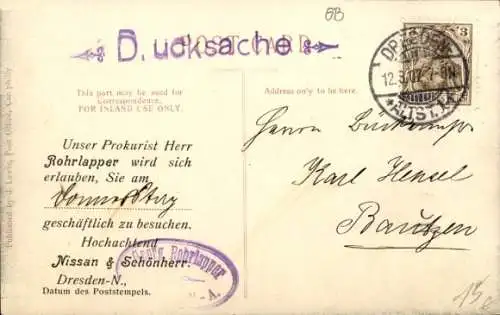 6B
D.ucksache
POST CARD
This part may be used for
Correspondence.
FOR INLAND USE ONLY.
Address only to be here.
3
DRESDEN
12.3.07. 7-8N
*ALTST.
Unser Prokurist Herr
Rohrlapper wird sich
erlauben, Sie am
Donnerstag
geschäftlich zu besuchen.
Hochachtend
Nissan & Schönherr.
Dresden-N.,
Datum des Poststempels.
Rohrlapper
-A.
Herrn
Karl Hensel
Bautzen
15